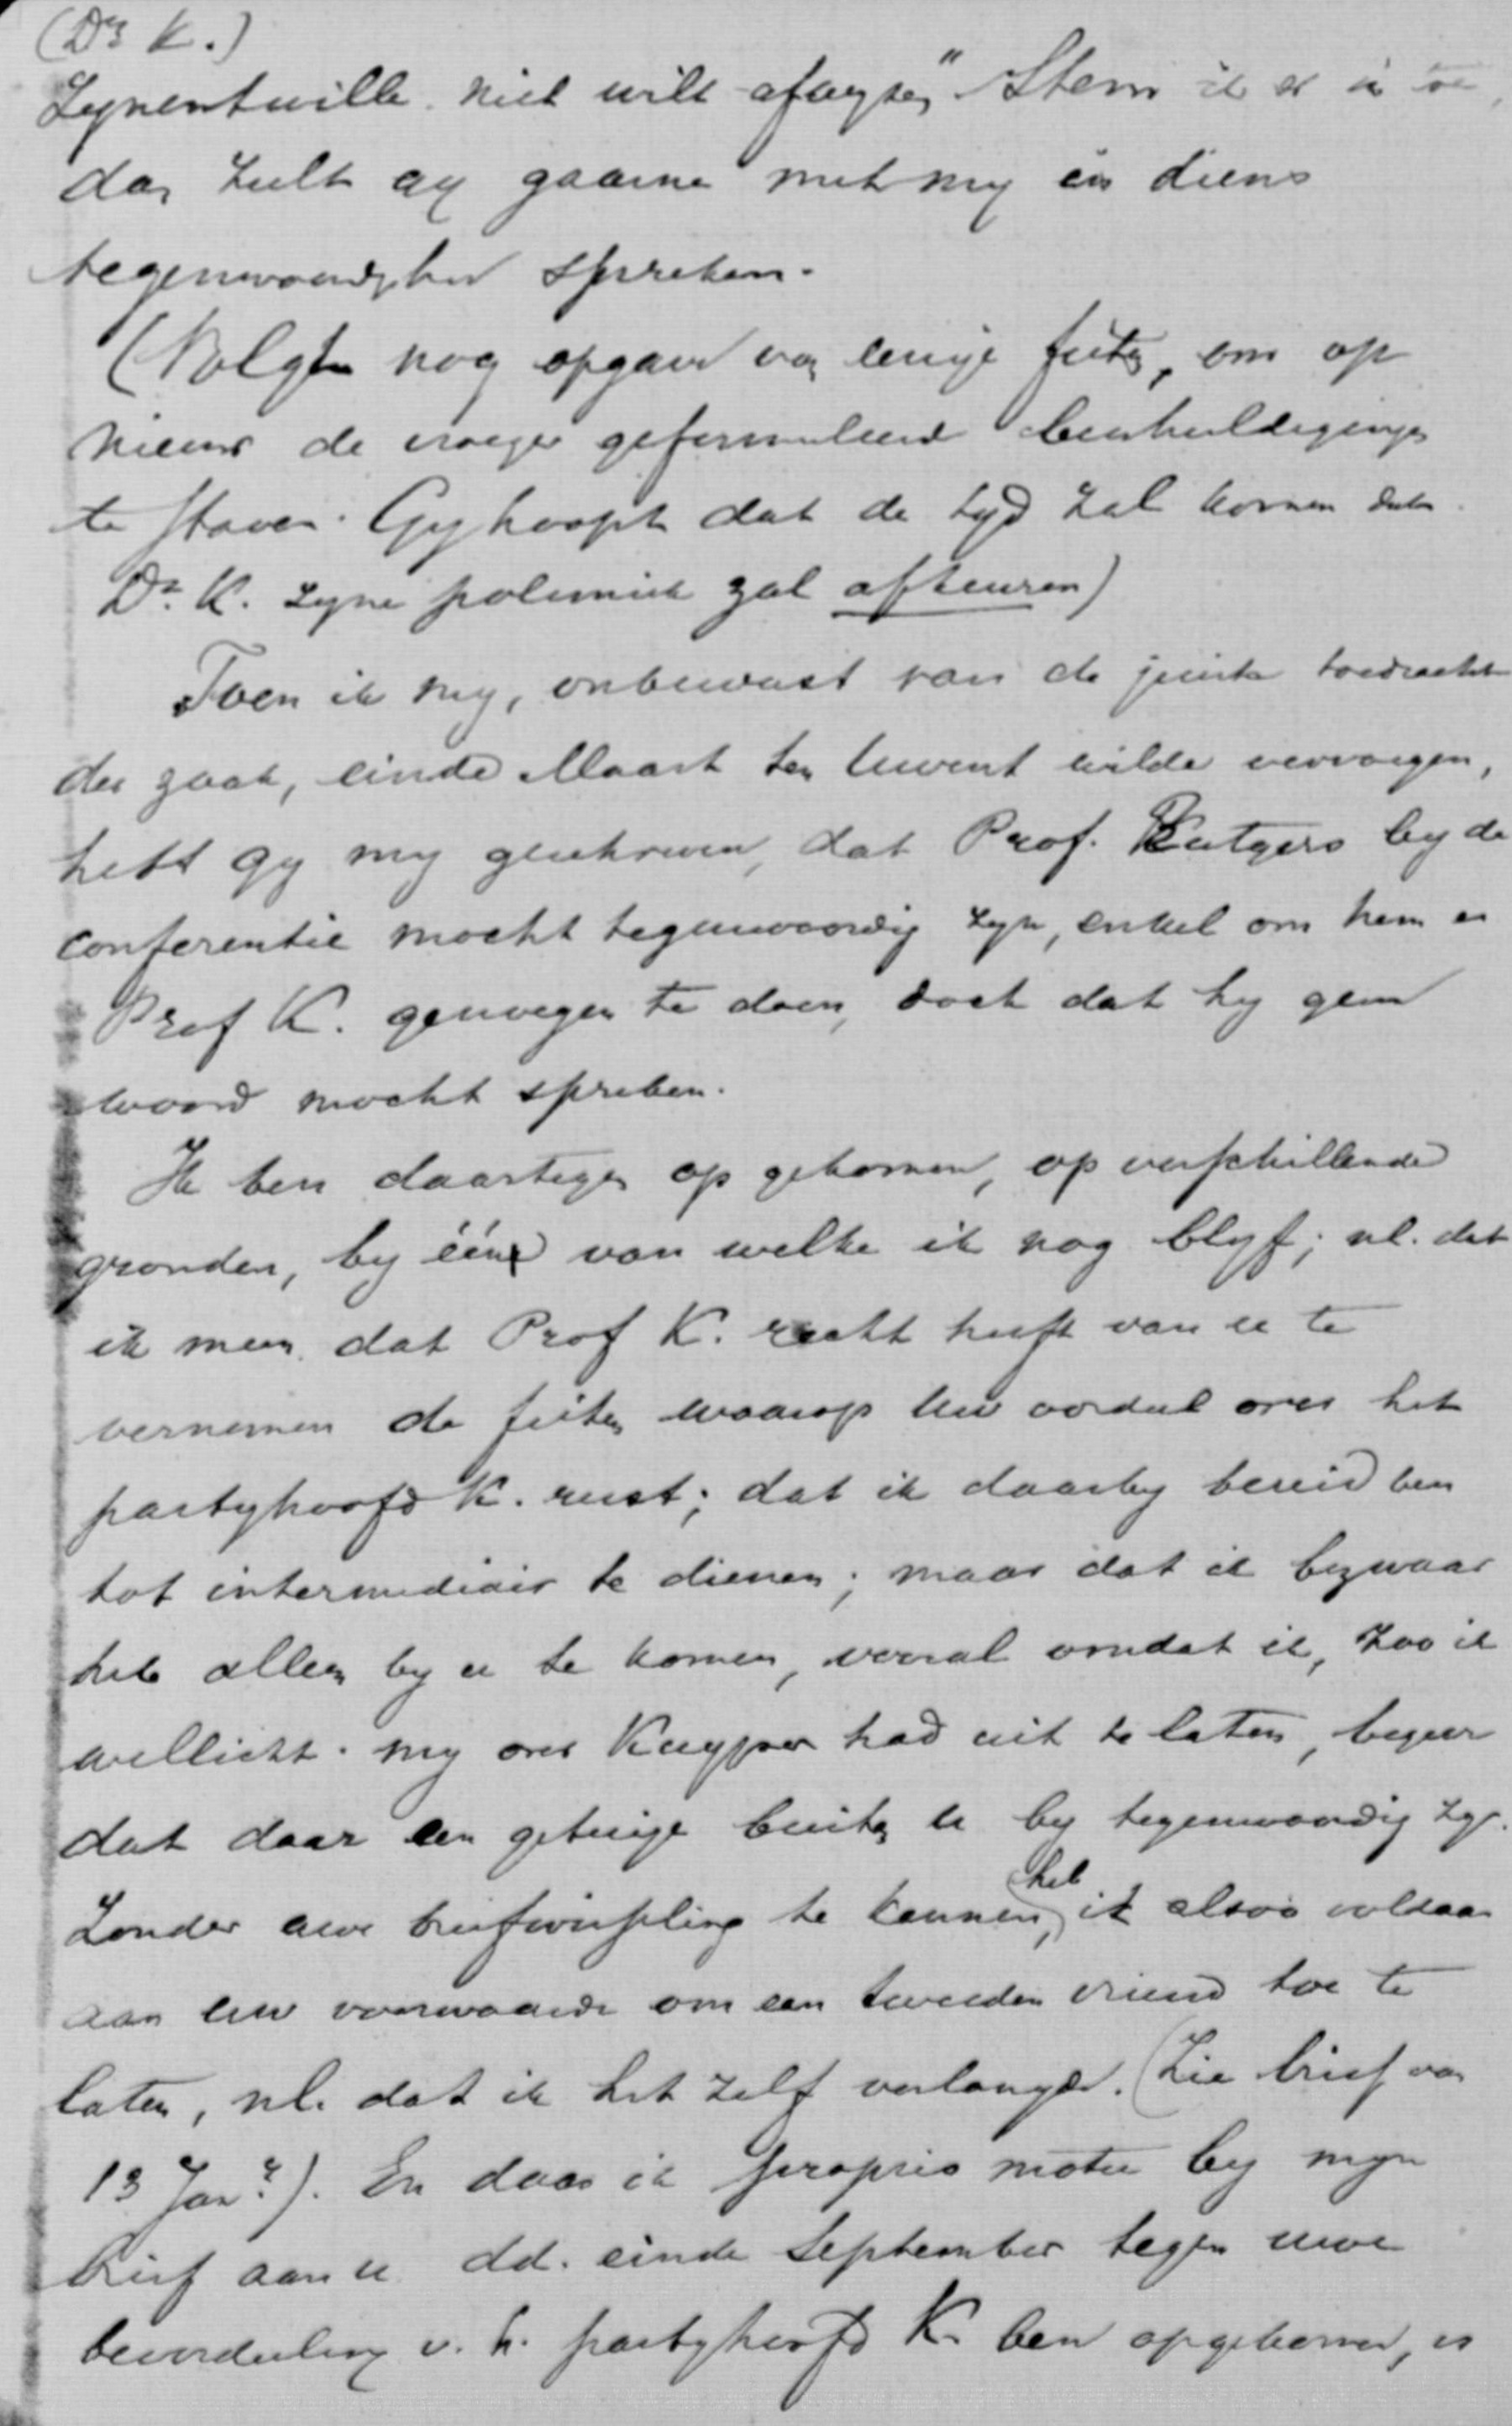 (Dr K.)
Zynentwille niet wilt afwyzen." Stem ik er in toe,
dan zult gy gaarne met my in diens
tegenwoordigheid spreken.
(Volgen nog opgave van eenige feiten, om op
nieuw de vroeger geformuleerde beschuldigingen
te staven. Gy hoopt dat de tyd zal komen dat
Dr. K. zyne polemiek zal afkeuren)
Toen ik my, onbewust van de juiste toedracht
der zaak, einde Maart ten Uwent wilde vervoegen,
hebt gy my geschreven, dat Prof. Rutgers by de
conferentie mocht tegenwoordig zyn, enkel om hem en
Prof K. genoegen te doen, doch dat hy geen
woord mocht spreken.
Ik ben daartegen op gekomen, op verschillende
gronden, by één van welke ik nog blyf; nl. dat
ik meen dat Prof K. recht heeft van u te
vernemen de feiten waarop Uw oordeel over het
partyhoofd K. rust; dat ik daarby bereid ben
tot intermediair te dienen; maar dat ik bezwaar
heb alleen by u te komen, vooral omdat ik, zoo ik
wellicht my over Kuyper had uit te laten, begeer
dat daar een getuige buiten u by tegenwoordig zy.
Zonder uwe briefwisseling te kennen, heb ik alzoo voldaan
aan uw voorwaarde om een tweeden vriend toe te
laten, nl. dat ik het zelf verlangde. (Zie brief van
13 Jan.). En daar ik proprio motu by myn
brief aan u dd. einde September tegen uwe
beoordeeling v. h. partyhoofd K. ben opgekomen, is